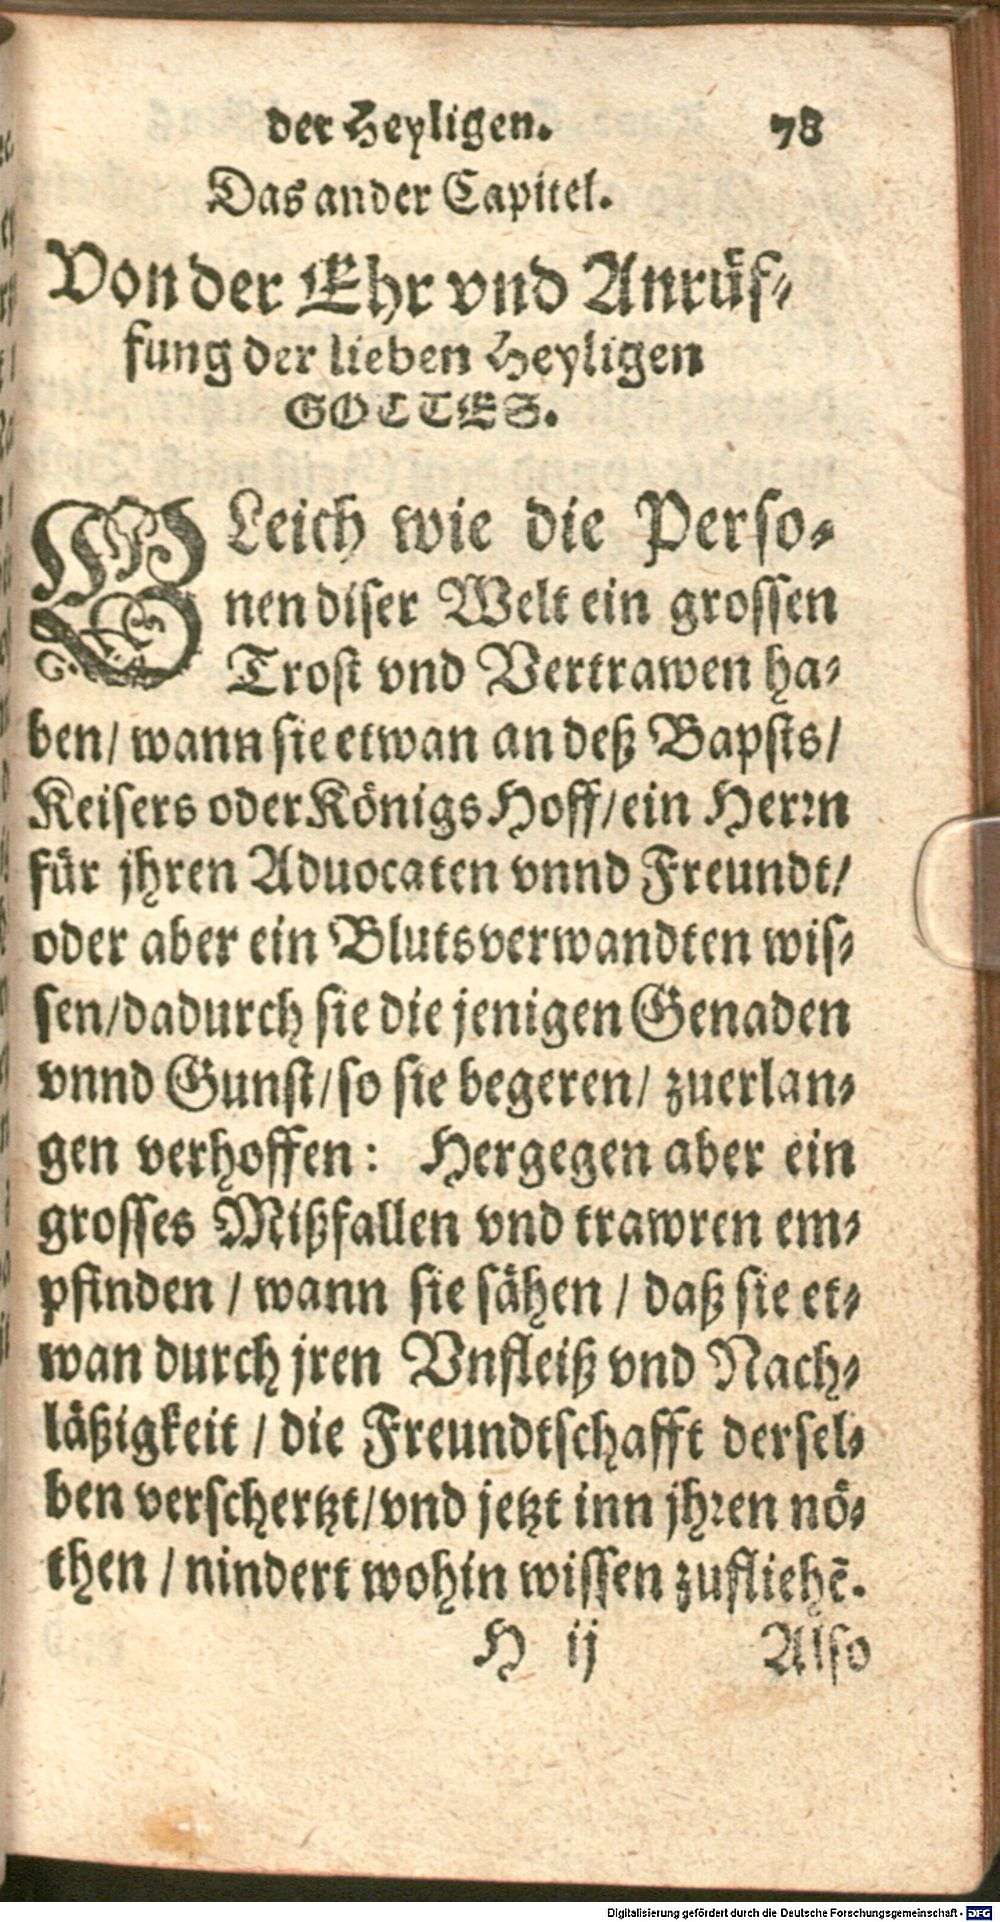 der Heyligen. 78
Das ander Capitel.
Von der Ehr vnd Anrüf-
fung der lieben Heyligen
GOTTES.
GLeich wie die Perso-
nen diser Welt ein grossen
Trost vnd Vertrawen ha-
ben/ wann sie etwan an deß Bapsts/
Keisers oder Königs Hoff/ein Herrn
für jhren Aduocaten vnnd Freundt/
oder aber ein Blutsverwandten wis-
sen/dadurch sie die jenigen Genaden
vnnd Gunst/so sie begeren/ zuerlan-
gen verhoffen: Hergegen aber ein
grosses Mißfallen vnd trawren em-
pfinden / wann sie sähen / daß sie et-
wan durch jren Vnfleiß vnd Nach-
läßigkeit / die Freundtschafft dersel-
ben verschertzt/vnd jetzt inn jhren nö-
then / nindert wohin wissen zufliehē.
H ij Also
Digitalisierung gefördert durch die Deutsche Forschungsgemeinschaft - DFG